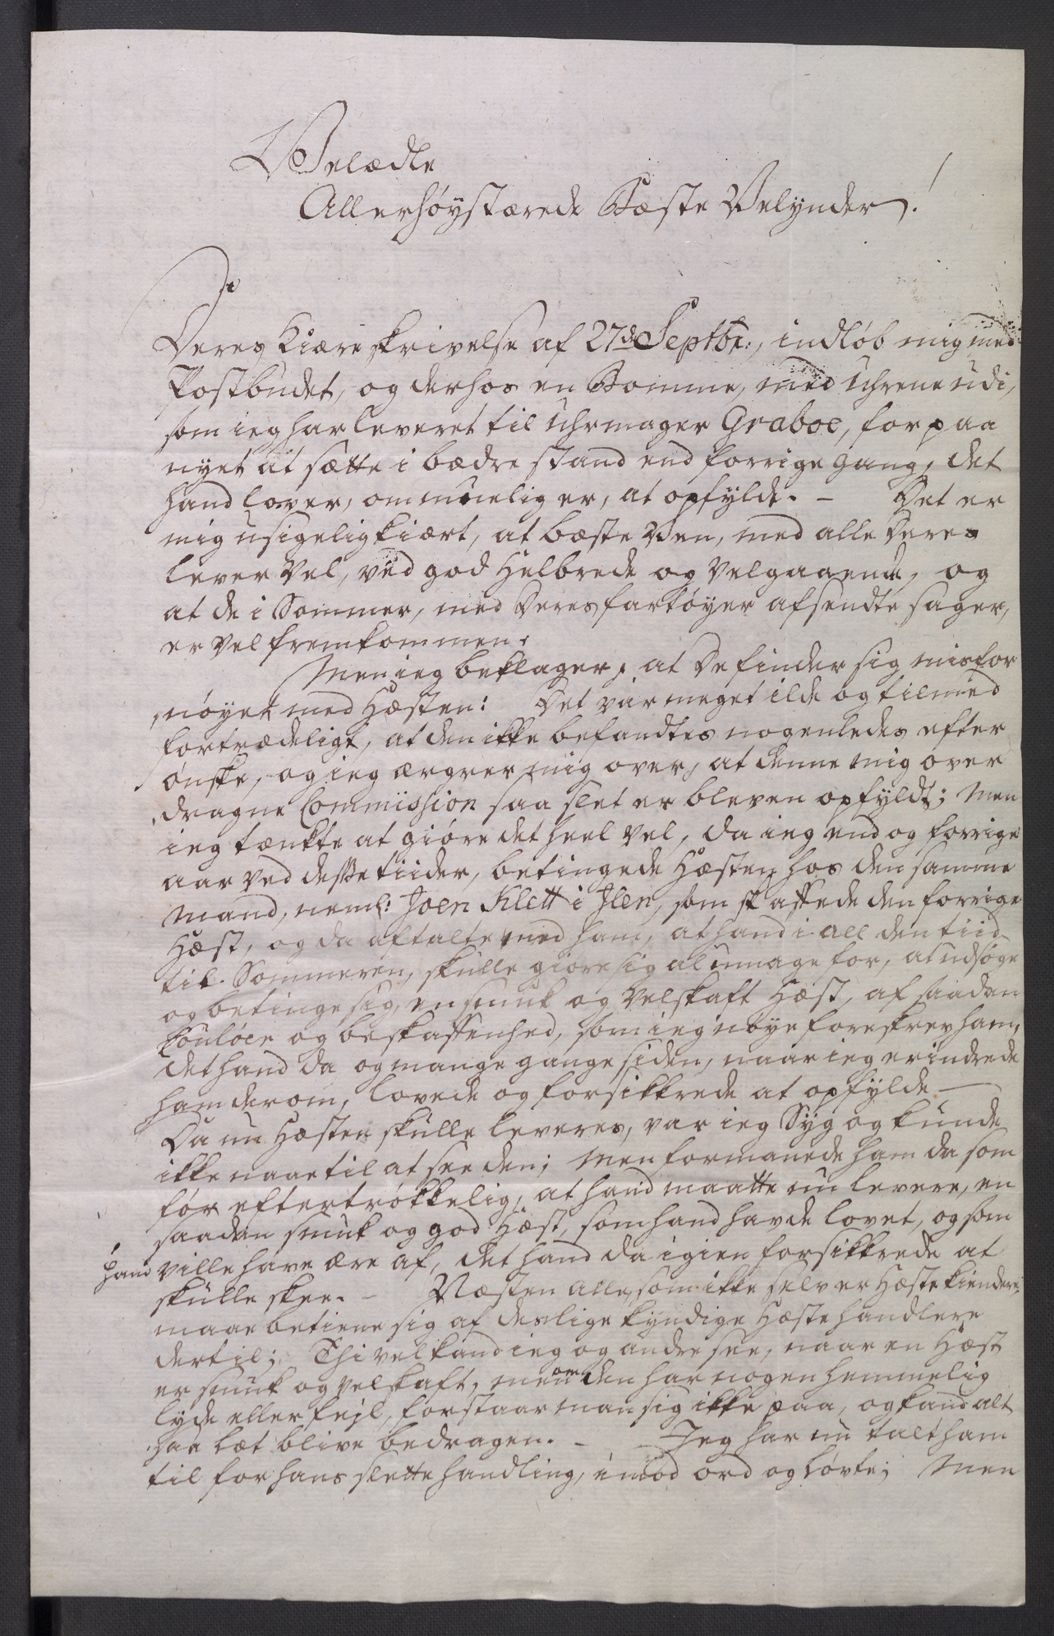 Velædle
Allerhøystærede Bæste Velynder!
Deres Kiære skrivelse af 27de Septbr:, indløb mig med
Postbudet, og derhos en Bomme, med Uhrene udi,
som ieg har leveret til Uhrmager Graboe, for paa
nyet at sætte i bædre stand end forrige gang, det
hand lover, om muelig er, at opfylde. – Det er
mig usigelig kiært, at bæste Ven, med alle Deres
lever Vel, ved god Helbrede og Velgaaende, og
at de i Sommer, med Deres fartøyer afsendte sager,
er vel fremkommen.
Men ieg beklager, at De finder sig misfor
nøyet med Hæsten: Det var meget ilde og tilmed
fortrædeligt, at den ikke befandtes nogenledes efter
ønske, og ieg ærgrer mig over, at denne mig over
dragne Commission saa slet er bleven opfyldt; Men
ieg tænkte at giøre det heel vel, da ieg end og forrige
aar ved desse tiider, betingede Hæsten hos den samme
Mand, neml: Joen Klett i Jlen, som skaffede den forrige
Hæst, og da aftalte med ham, at hand i all den tiid
til Sommeren, skulle giøre sig al umage for, at udsøge
og betinge sig, en smuk og Velskaft Hæst, af saadan
Couløer og beskaffenhed, som ieg nøye foreskrev ham,
det hand da og mange gange siden, naar ieg erindrede
ham derom, lovede og forsikkrede at opfylde –
Da nu Hæsten skulle leveres, var ieg Syg og kunde
ikke naae til at see den; Men formanede ham da som
før eftertrøkkelig, at hand maatte nu levere, en
saadan smuk og god Hæst, som hand havde lovet, og som
hand ville have ære af, det hand da igien forsikkrede at
skulle skee. – Næsten Alle, som ikke selv er Hæstekiendere,
maae betiene sig af deslige kyndige Hæstehandlere
dertil; Thi vel kand ieg og andre see, naar en Hæst
er smuk og velskaft, men om den har nogen hemmelig
lyde eller fejl, forstaar man sig ikke paa, og kand alt
saa læt blive bedragen. – Jeg har nu talt ham
til for hans slette handling, imod ord og løvte; Men